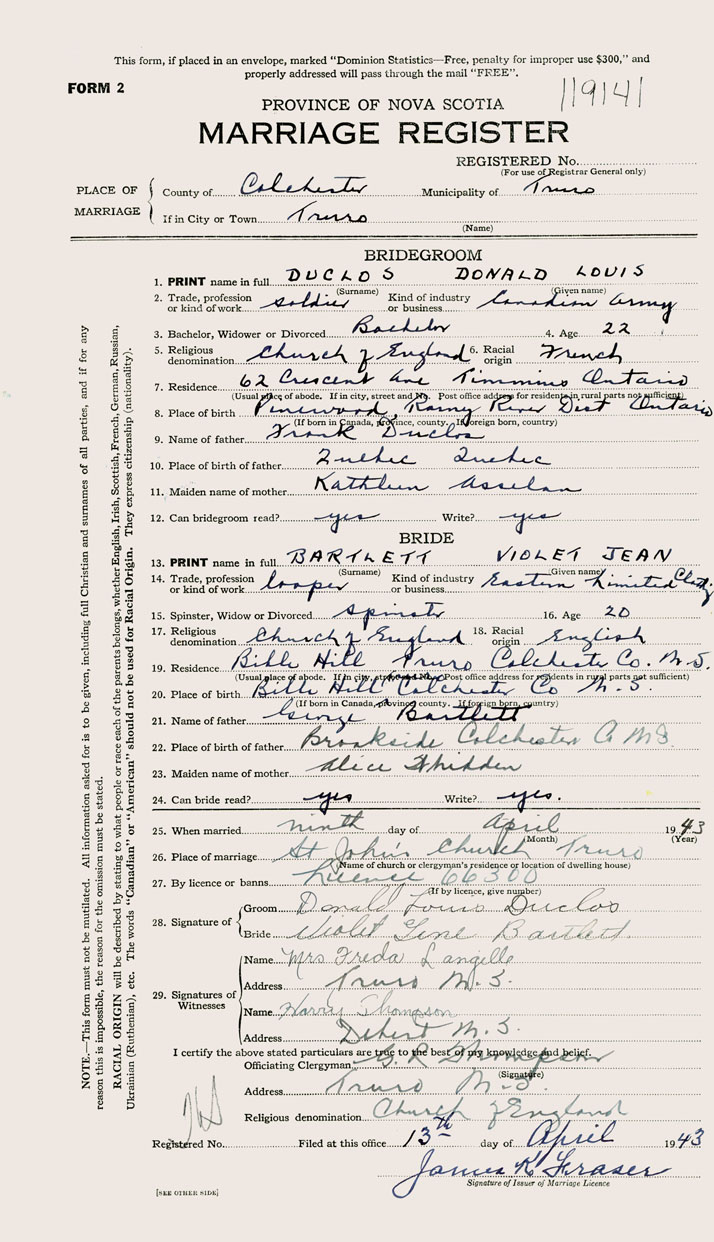 This form, if placed in an envelope, marked "Dominion Statistics—Free, penalty for improper use $300," and
properly addressed will pass through the mail "FREE".
FORM 2
119141
PROVINCE OF NOVA SCOTIA
MARRIAGE REGISTER
REGISTERED No.
(For use of Registrar General only)
PLACE OF MARRIAGE
County of Colchester Municipality of Truro
If in City or Town Truro
(Name)
BRIDEGROOM
1. PRINT name in full DUCLOS DONALD LOUIS
(Surname) (Given name)
2. Trade, profession or kind of work soldier Kind of industry or business Canadian Army
3. Bachelor, Widower or Divorced Bachelor 4. Age 22
5. Religious denomination Church of England 6. Racial origin French
7. Residence 62 Crescent Ave Timmins Ontario
(Usual place of abode. If in city, street and No. Post office address for residents in rural parts not sufficient)
8. Place of birth Pinewood, Rainy River Dist Ontario
(If born in Canada, province, county. If foreign born, country)
9. Name of father Frank Duclos
10. Place of birth of father Quebec Quebec
11. Maiden name of mother Kathleen Asselan
12. Can bridegroom read? yes Write? yes
BRIDE
13. PRINT name in full BARTLETT VIOLET JEAN
(Surname) (Given name)
14. Trade, profession or kind of work looper Kind of industry or business Eastern Limited
15. Spinster, Widow or Divorced Spinster 16. Age 20
17. Religious denomination Church of England 18. Racial origin English
19. Residence Bible Hill Truro Colchester Co. N.S.
(Usual place of abode. If in city, street and No. Post office address for residents in rural parts not sufficient)
20. Place of birth Bible Hill Colchester Co N.S.
(If born in Canada, province, county. If foreign born, country)
21. Name of father George Bartlett
22. Place of birth of father Brookside Colchester Co NS
23. Maiden name of mother Alice Whidden
24. Can bride read? yes Write? yes.
25. When married ninth day of April 1943
(Month) (Year)
26. Place of marriage St John's Church Truro
(Name of church or clergyman's residence or location of dwelling house)
27. By licence or banns Licence 66300
(If by licence, give number)
28. Signature of
Groom Donald Louis Duclos
Bride Violet Jene Bartlett
29. Signatures of Witnesses
Name Mrs Freda Langille
Address Truro N.S.
Name Harry Thompson
Address Debert N.S.
I certify the above stated particulars are true to the best of my knowledge and belief.
Officiating Clergyman G. R Thompson
(Signature)
Address Truro N.S.
Religious denomination Church of England
Registered No. Filed at this office 13th day of April 1943
James K Fraser
Signature of Issuer of Marriage Licence
[SEE OTHER SIDE]
NOTE.—This form must not be mutilated. All information asked for is to be given, including full Christian and surnames of all parties, and if for any
reason this is impossible, the reason for the omission must be stated.
RACIAL ORIGIN will be described by stating to what people or race each of the parents belongs, whether English, Irish, Scottish, French, German, Russian,
Ukrainian (Ruthenian), etc. The words "Canadian" or "American" should not be used for Racial Origin. They express citizenship (nationality).